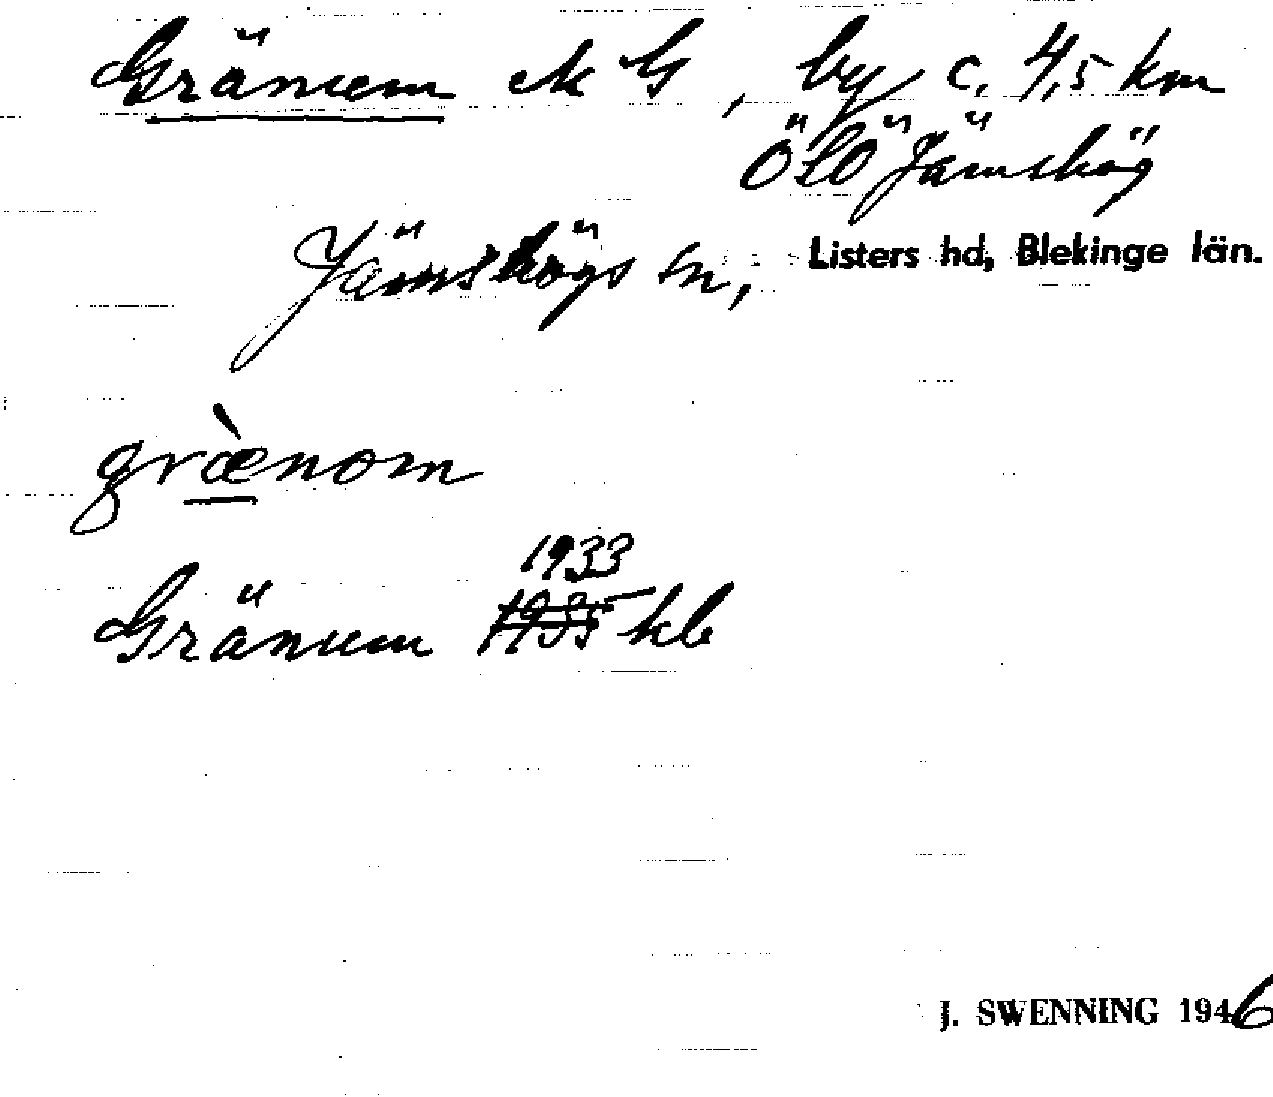 Gränum ek G, by c. 4,5 km
ÖLÖ Jämshög
Jämshögs sn, Listers hd, Blekinge län.
grænom
1933
Gränum 1985 kb
J. SWENNING 1946